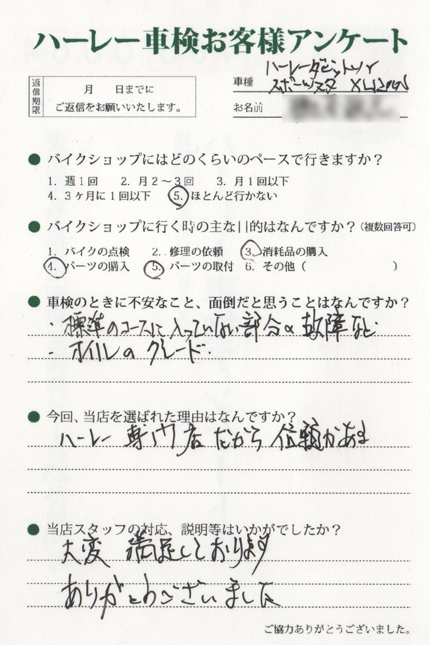 ハーレー車検お客様アンケート
返信期限
月　　日までに
ご返信をお願いいたします。
車種 ハーレーダビットソン
スポーツスター XL1200
お名前
● バイクショップにはどのくらいのペースで行きますか？
1. 週1回　2. 月2～3回　3. 月1回以下
4. 3ヶ月に1回以下　5. ほとんど行かない
● バイクショップに行く時の主な目的はなんですか？（複数回答可）
1. バイクの点検　2. 修理の依頼　3. 消耗品の購入
4. パーツの購入　5. パーツの取付　6. その他（　　　　　　）
● 車検のときに不安なこと、面倒だと思うことはなんですか？
・標準のコースに入っていない部分の故障など
・オイルのグレード.
● 今回、当店を選ばれた理由はなんですか？
ハーレー専門店だから信頼がある
● 当店スタッフの対応、説明等はいかがでしたか？
大変満足しております
ありがとうございました
ご協力ありがとうございました。